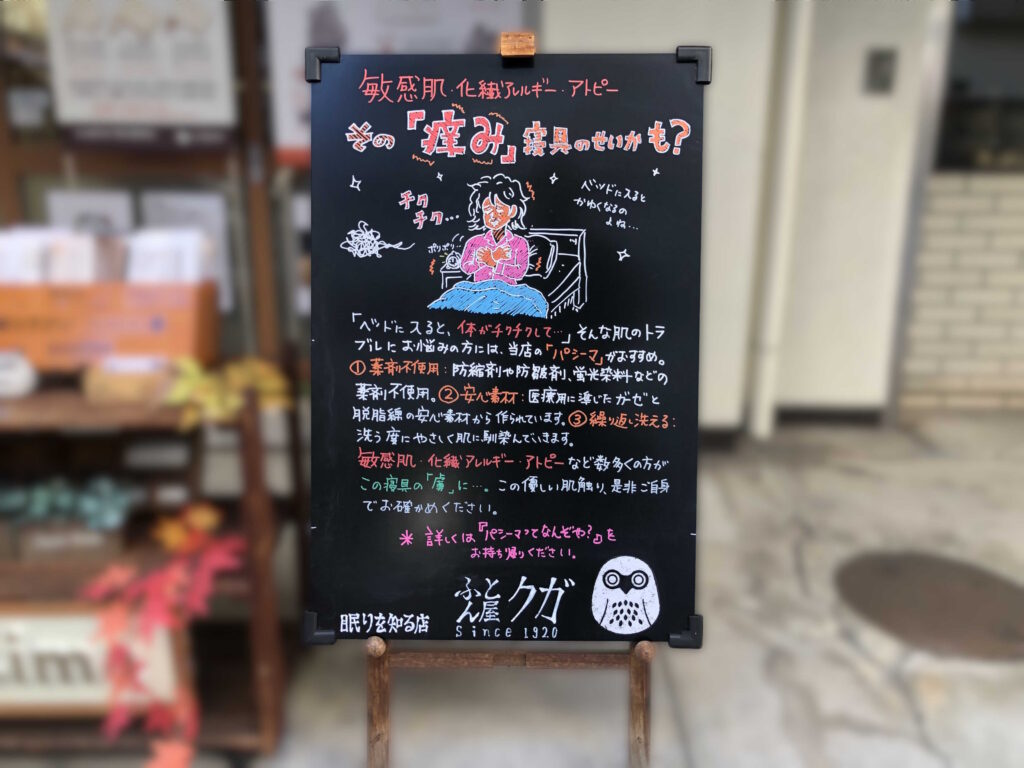 敏感肌・化繊アレルギー・アトピー
その「痒み」寝具のせいかも?
チク
チク…
ベッドに入ると
かゆくなるの
よね…
ポリポリ
「ベッドに入ると、体がチクチクして…」そんな肌のトラ
ブルにお悩みの方には、当店の「パシーマ」がおすすめ。
①薬剤不使用:防縮剤や防皺剤、蛍光染料などの
薬剤不使用。②安心素材:医療用に準じたガーゼと
脱脂綿の安心素材から作られています。③繰り返し洗える:
洗う度にやさしく肌に馴染んでいきます。
敏感肌・化繊アレルギー・アトピーなど数多くの方が
この寝具の「虜」に…。この優しい肌触り、是非ご自身
でお確かめください。
* 詳しくは『パシーマってなんぞや?』を
お持ち帰りください。
眠りを知る店
ふとん屋 クガ
Since 1920